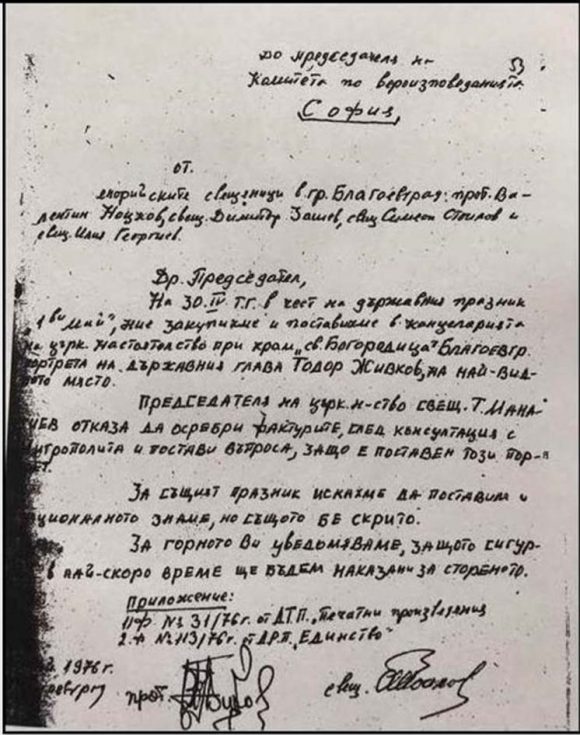 до председателя на
53
Комитета по вероизповеданията
София,
от.
енорийските свещеници в гр. Благоевград: прот. Ва-
лентин Ноцков, свещ. Димитър Зашев, свещ. Симеон Стоилов и
свещ. Илия Георгиев.
Др. Председател,
На 30.IV т.г. в чест на държавния празник
"1ви Май", ние закупихме и поставихме в канцеларията
на църк. настоятелство при храм "св. Богородица" Благоевгр.
портрета на държавния глава Тодор Живков, на най-вид-
ното място.
Председателя на църк. н-ство свещ. Т. Мана-
отказа да осребри фактурите, след консултация с
митрополита и постави въпроса, защо е поставен този пор-
За същият празник искахме да поставим и
ционалното знаме, но същото бе скрито.
За горното Ви уведомяваме, защото сигур-
в най-скоро време ще бъдем наказани за стореното.
Приложение:
1) ф. № 31/76 г. от Д.Т.П. "Печатни произведения
2. ф № 113/76 г. от ДРП. "Единство"
1976 г.
прот.
свещ.